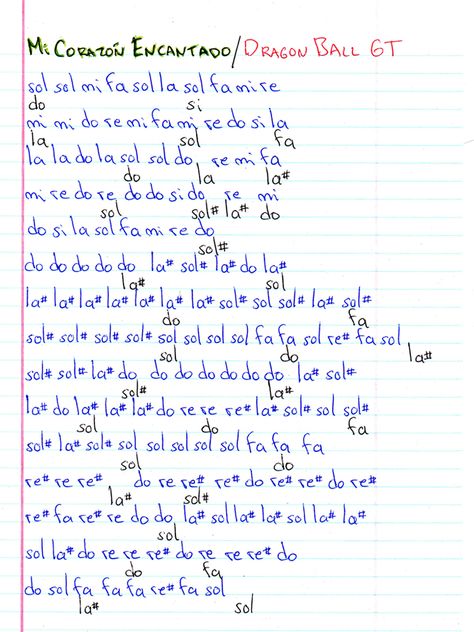 Mi Corazón Encantado/Dragon Ball GT
sol sol mi fa sol la sol fa mi re
do si
mi mi do re mi fa mi re do si la
la sol fa
la la do la sol sol do re mi fa
do la la#
mi re do re do do si do re mi
sol sol# la# do
do si la sol fa mi re do
sol#
do do do do do la# sol# la do la#
la# sol
la# la# la# la# la# la# la# sol# sol sol# la# sol#
do fa
sol# sol# sol# sol# sol sol sol sol fa fa sol re# fa sol
sol do la#
sol# sol# la# do do do do do do do la# sol#
sol# la#
la# do la# la# la# do re re re# la# sol# sol sol#
sol do fa
sol# la# sol# sol sol sol sol sol fa fa fa
sol do
re# re re# do re re# re# do re# re# do re#
la# sol#
re# fa re# re do do la# sol la# la# sol la# la#
sol
sol la# do re re re# do re re re# do
do fa
do sol fa fa fa re# fa sol
la# sol